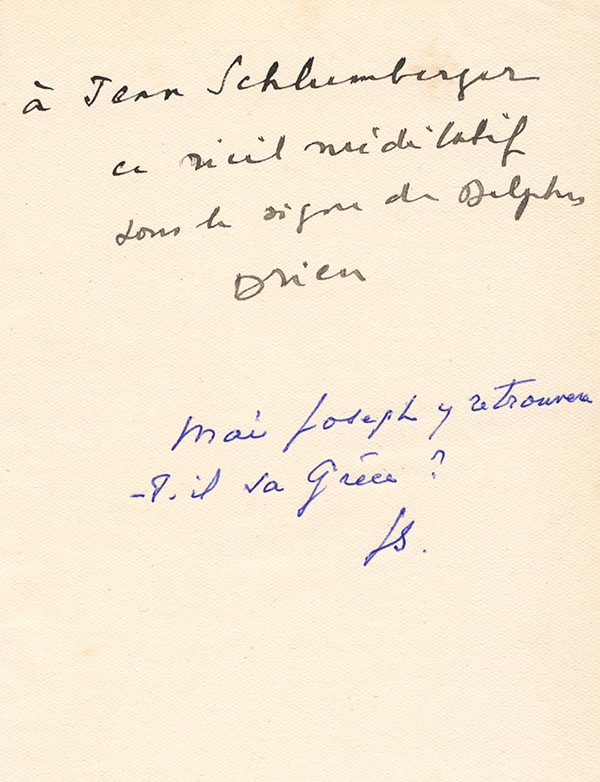 à Jean Schlumberger
ce récit méditatif
sous le signe de Delphes
Drieu
Mais Joseph y retrouvera
-T-il sa Grèce ?
JS.